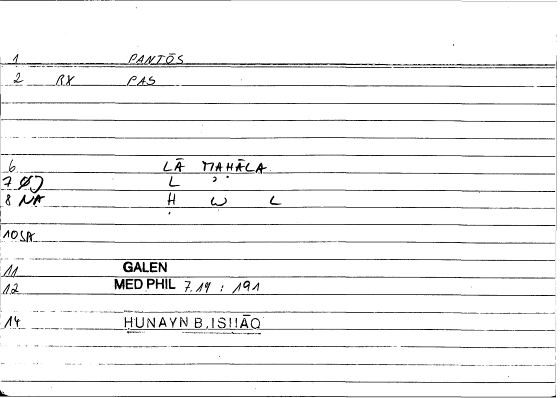 1 PANTŌS
2 RX PAS
6 LĀ MAḤĀLA
7 ØJ L ʾ
8 NA Ḥ W L
10 SA
11 GALEN
12 MED PHIL 7.14 : 191
14 ḤUNAYN B. ISḤĀQ